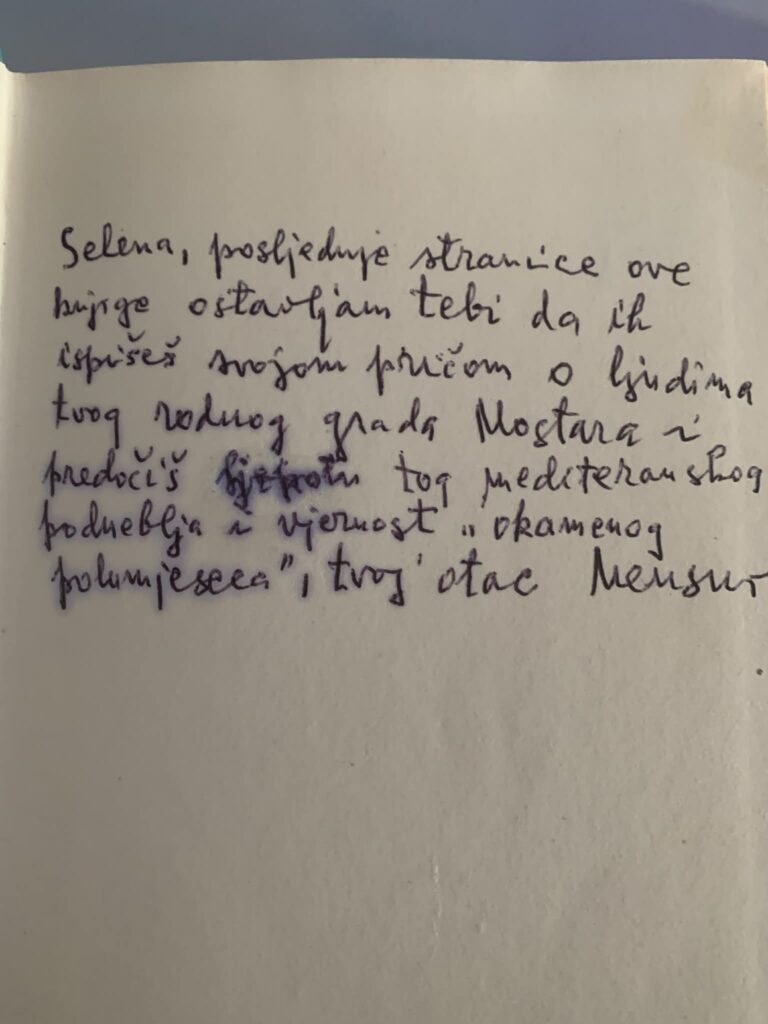 Selena, posljednje stranice ove
knjige ostavljam tebi da ih
ispišeš svojom pričom o ljudima
tvog rodnog grada Mostara i
predočiš ljepotu tog mediteranskog
podneblja i vjernost „okamenog
polumjeseca”, tvoj otac Mensur